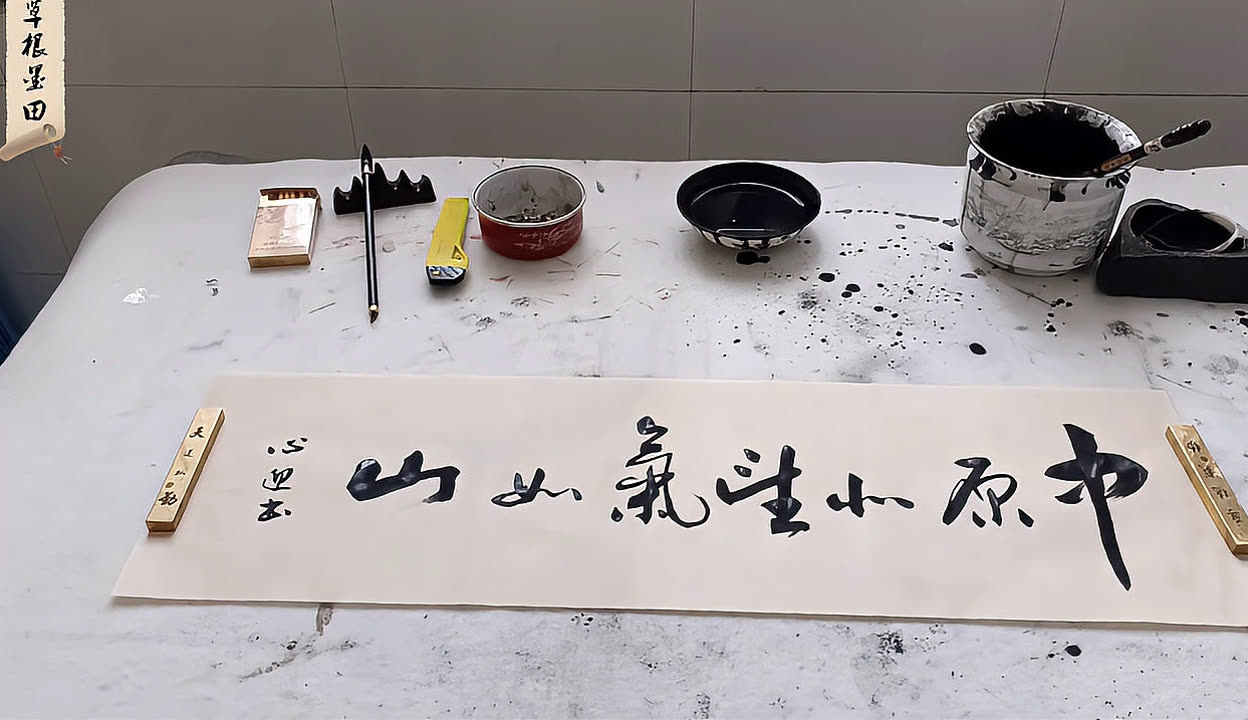 草根墨田
中原北望氣如山
心迎书
天道酬勤